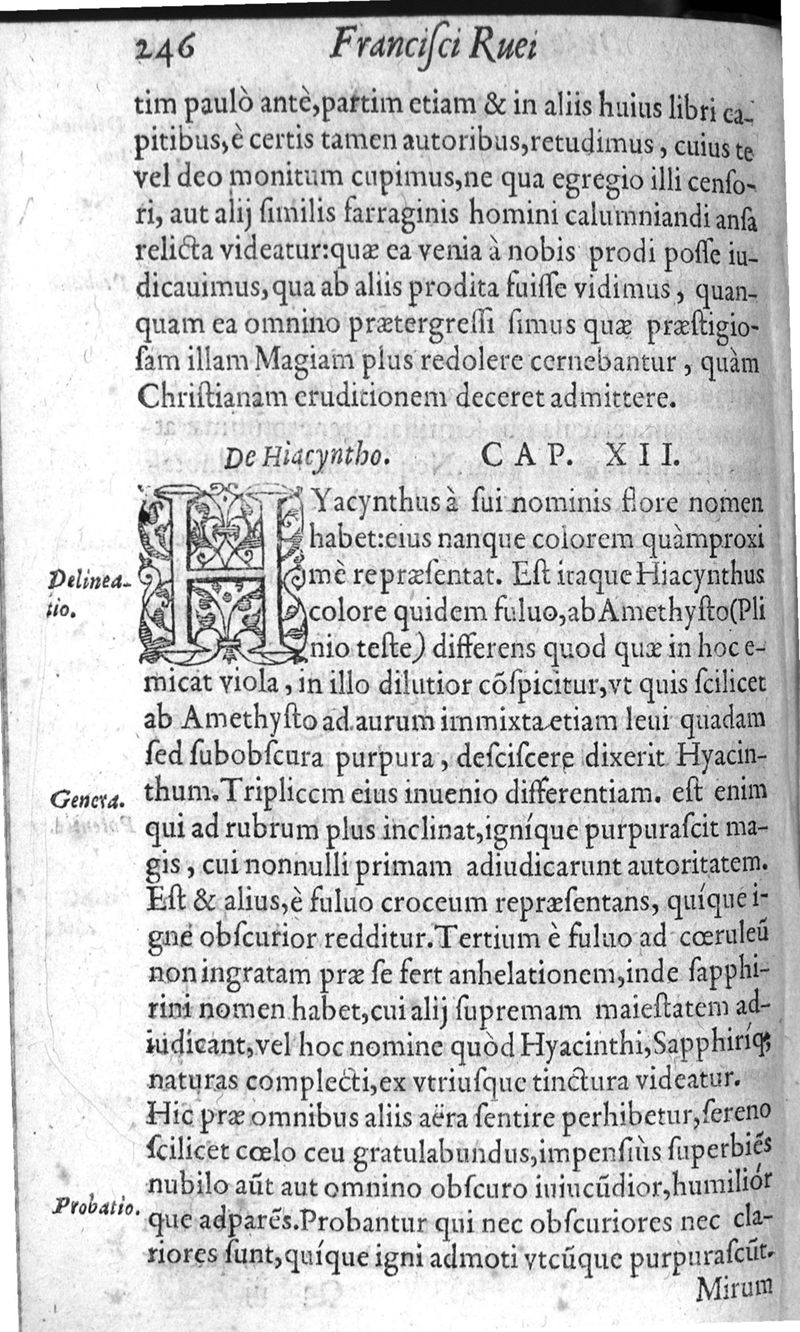 246 Franciſci Ruei
tim paulò antè, partim etiam & in aliis huius libri ca-
pitibus, è certis tamen autoribus, retudimus, cuius te
vel deo monitum cupimus, ne qua egregio illi cenſo-
ri, aut alij ſimilis farraginis homini calumniandi anſa
relicta videatur: quæ ea venia à nobis prodi poſſe iu-
dicauimus, qua ab aliis prodita fuiſſe vidimus, quan-
quam ea omnino prætergreſſi ſimus quæ præſtigio-
ſam illam Magiam plus redolere cernebantur, quàm
Chriſtianam eruditionem deceret admittere.
De Hiacyntho. CAP. XII.
HYacynthus à ſui nominis flore nomen
habet: eius nanque colorem quàmproxi
mè repræſentat. Eſt itaque Hiacynthus
Delinea-
tio.
colore quidem fuluo, ab Amethyſto (Pli
nio teſte) differens quod quæ in hoc e-
micat viola, in illo dilutior cõſpicitur, vt quis ſcilicet
ab Amethyſto ad aurum immixta etiam leui quadam
ſed ſubobſcura purpura, deſciſcere dixerit Hyacin-
Genera.
thum. Triplicem eius inuenio differentiam. eſt enim
qui ad rubrum plus inclinat, igníque purpuraſcit ma-
gis, cui nonnulli primam adiudicarunt autoritatem.
Eſt & alius, è fuluo croceum repræſentans, quíque i-
gne obſcurior redditur. Tertium è fuluo ad cœruleũ
non ingratam præ ſe fert anhelationem, inde ſapphi-
rini nomen habet, cui alij ſupremam maieſtatem ad-
iudicant, vel hoc nomine quòd Hyacinthi, Sapphiríq;
naturas complecti, ex vtriuſque tinctura videatur.
Hic præ omnibus aliis aëra ſentire perhibetur, ſereno
ſcilicet cœlo ceu gratulabundus, impenſiùs ſuperbiẽs
nubilo aũt aut omnino obſcuro iniucũdior, humilior
Probatio.
que adparẽs. Probantur qui nec obſcuriores nec cla-
riores ſunt, quíque igni admoti vtcũque purpuraſcũt.
Mirum